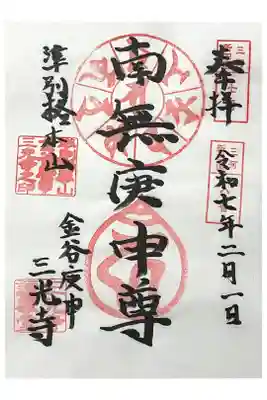 奉拝
令和七年二月一日
南無庚申尊
準別格本山
金谷庚申
三光寺